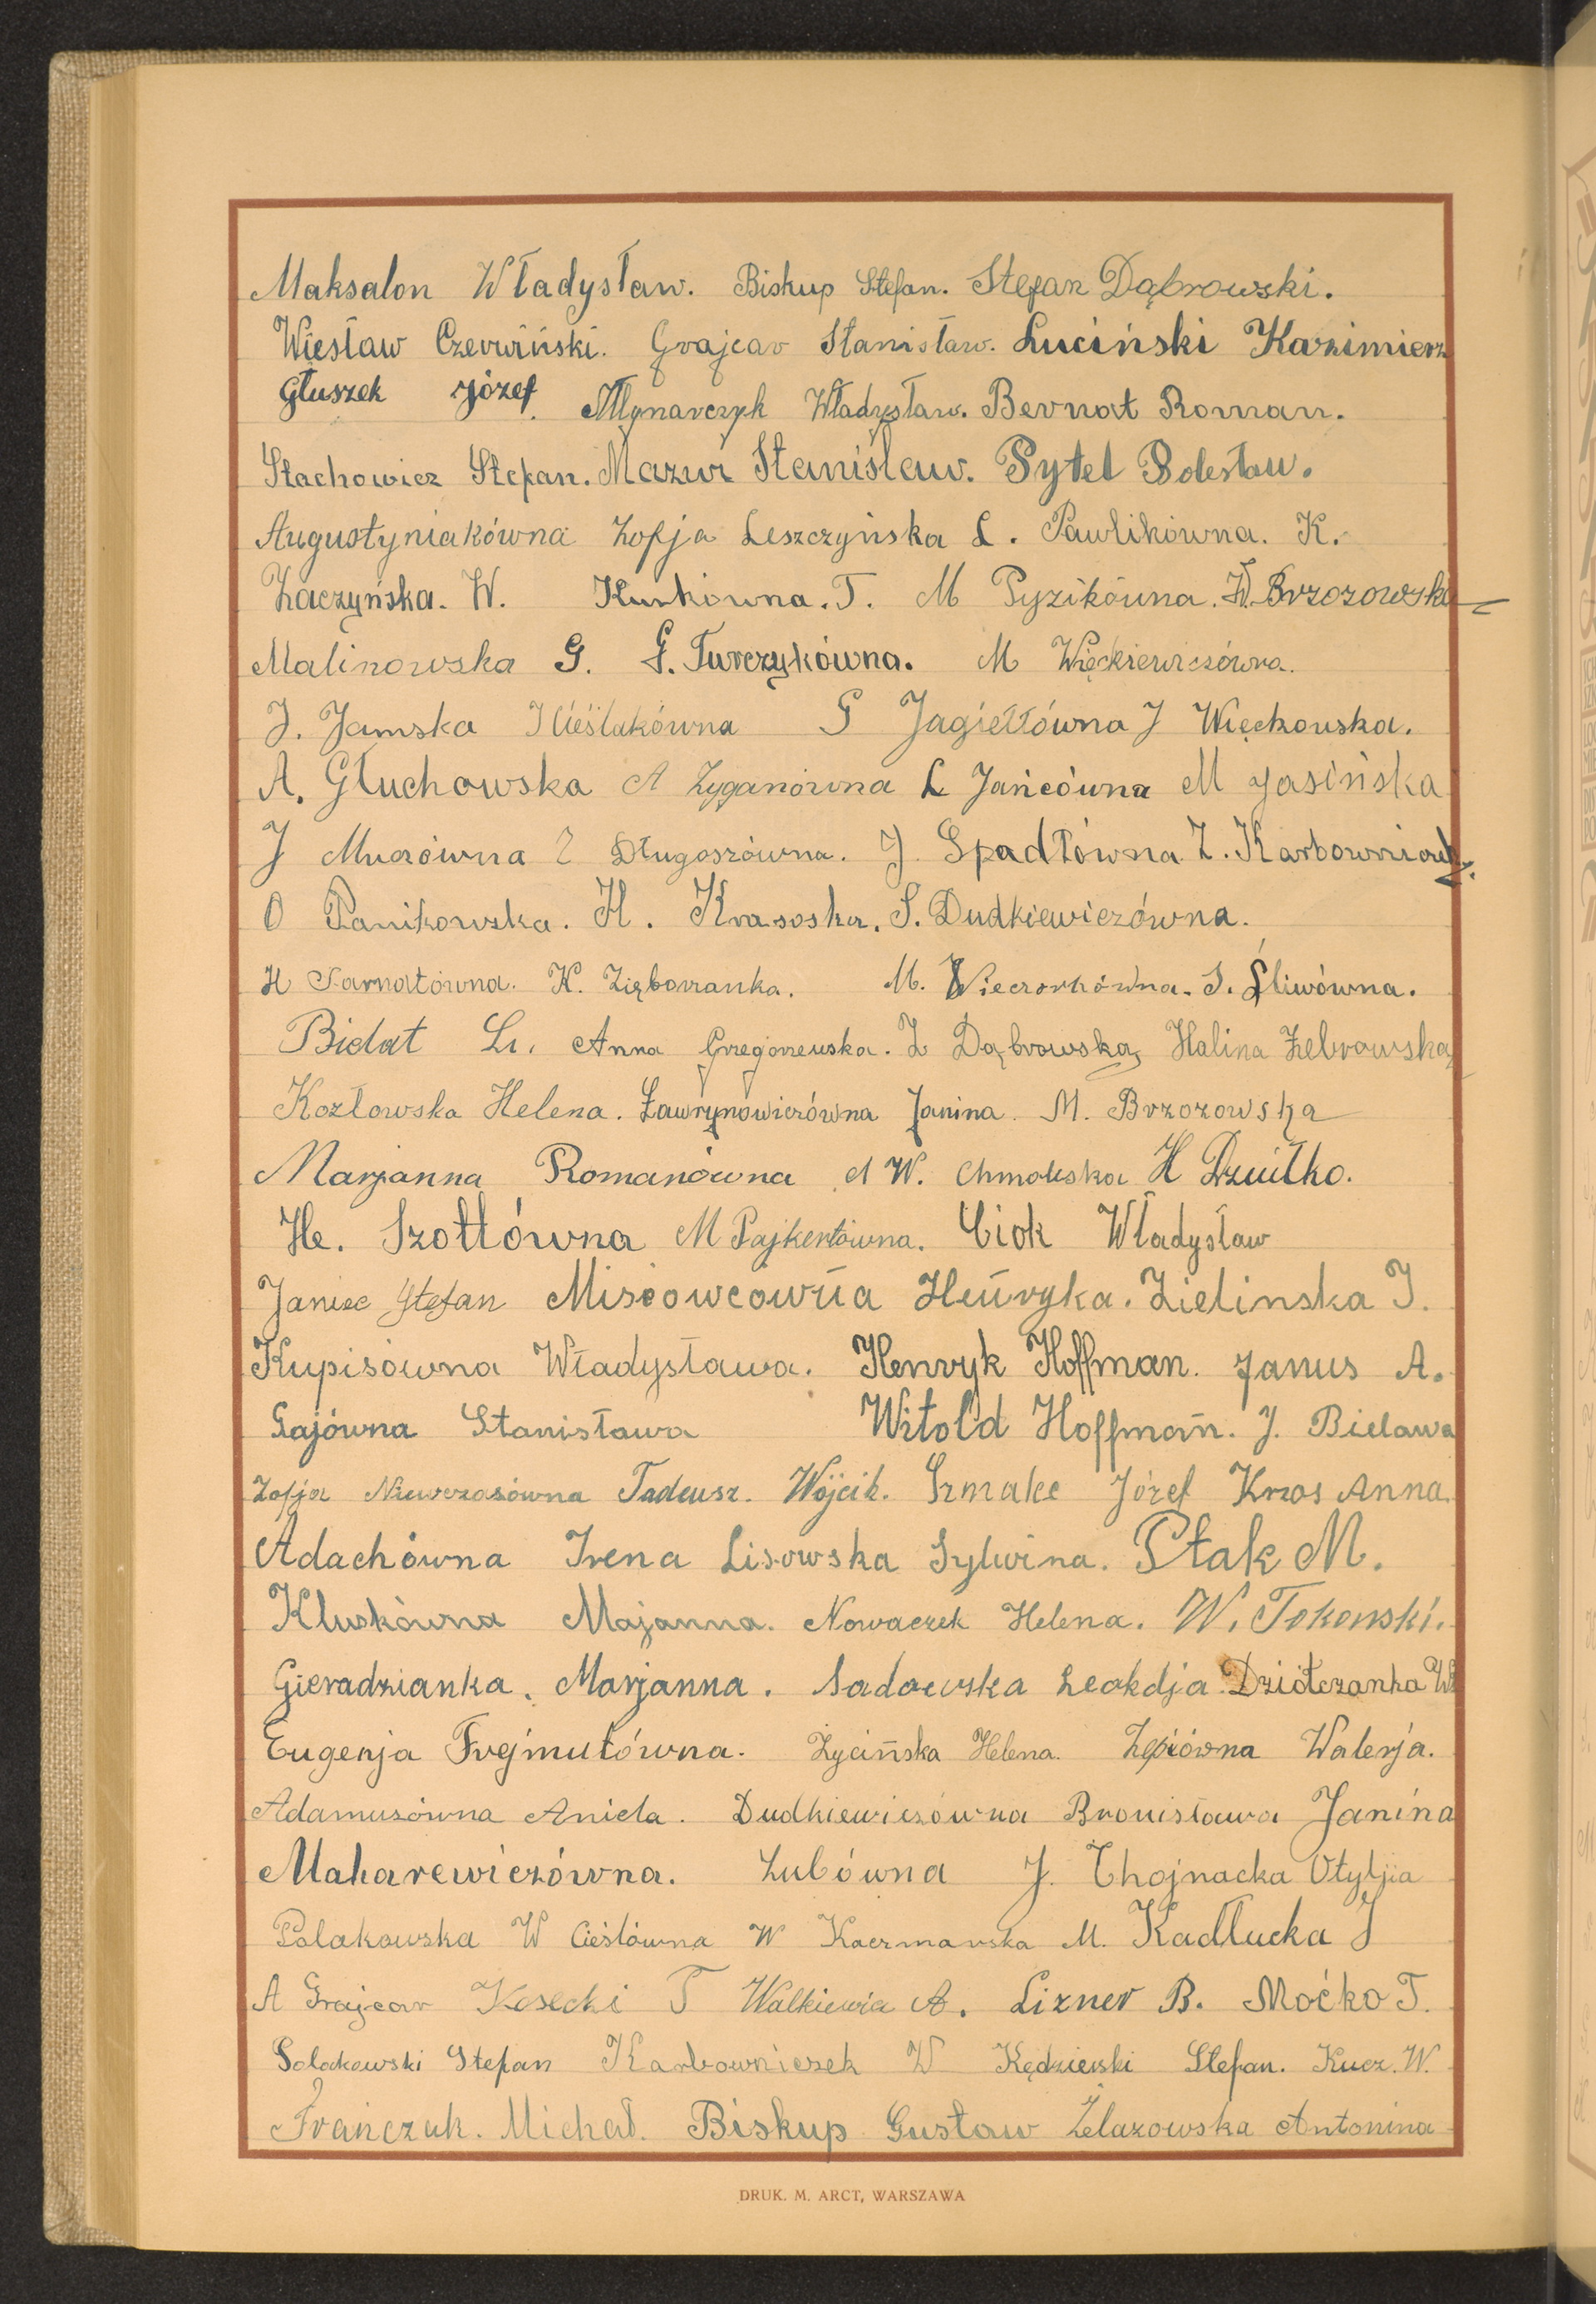 Maksalon Władysław. Biskup Stefan. Stefan Dąbrowski.
Wiesław Czerwiński. Grajcar Stanisław. Luciński Kazimierz
Głuszek Józef. Młynarczyk Władysław. Bernat Roman.
Stachowicz Stefan. Mazur Stanisław. Pytel Bolesław.
Augustyniakówna Zofja Leszczyńska L. Pawlikówna. K.
Żaczyńska. W. Kurkówna. T. M Pyzikówna. W. Brzozowska
Malinowska G. G. Turczykówna. M Więckiewiczówna.
J. Jamska J Cieślakówna G Jagiełłówna J Więckowska.
A. Głuchowska A Zyganówna L Jańcówna M Jasińska
J Mrozówna Z Długoszówna. J. Spadłówna. Z. Karbowniczek.
O Panikowska. H. Krasoska. S. Dudkiewiczówna.
H Sarnatówna. K. Ziębowranka. M. Wieczorkówna. S. Śliwówna.
Bidat Lr. Anna Grzegorzewska. Z Dąbrowska, Halina Żebrowska
Kozłowska Helena. Ławrynowiczówna Janina. M. Brzozowska
Marjanna Romanówna W. Chmolewska H Dzwiłko.
He. Szołłówna M Pajkertówna. Ciok Władysław
Janiec Stefan Misiowcówna Henryka. Zielinska J.
Kupisówna Władysława. Henryk Hoffman. Janus A.
Gajówna Stanisława Witold Hoffman. J. Bielawa
Zofja Niewczasówna Tadeusz. Wójcik. Szmalec Józef Krzos Anna.
Adachówna Irena Lisowska Sylwina. Ptak M.
Kluskówna Majanna. Nowaczek Helena. W. Tokonski.
Gieradzianka. Marjanna. Sadowska Leokdja. Dziółczanka W
Eugenja Frejmutówna. Życińska Helena. Zębówna Walerja.
Adamusówna Aniela. Dudkiewiczówna Bronisława Janina
Makarewiczówna. Zubówna J. Chojnacka Otylja
Polakowska W Cieślówna W Kaczmarska M. Kadlucka J
A Grajcar Kosecki T Walkiewicz A. Lizner B. Moćko T.
Polakowski Stefan Karbowniczek W Kędzierski Stefan. Kucz. W.
Frańczuk. Michał. Biskup Gustaw Żelazowska Antonina
DRUK. M. ARCT, WARSZAWA